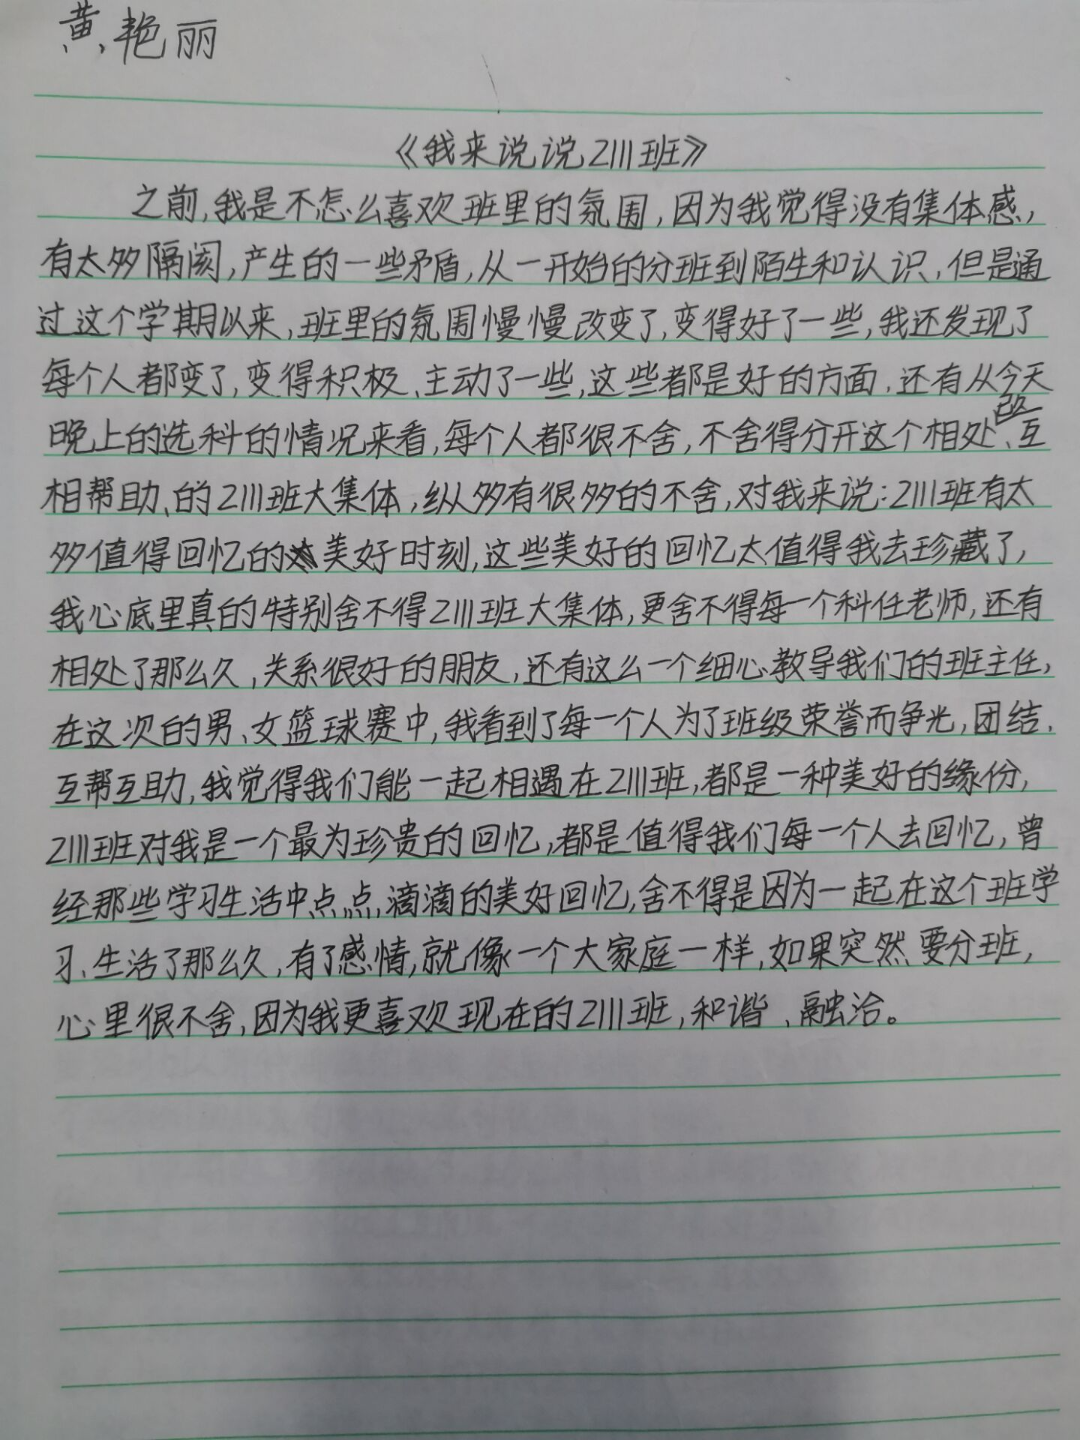 黄艳丽
《我来说说2111班》
之前,我是不怎么喜欢班里的氛围,因为我觉得没有集体感,
有太多隔阂,产生的一些矛盾,从一开始的分班到陌生和认识,但是通
过这个学期以来,班里的氛围慢慢改变了,变得好了一些,我还发现了
每个人都变了,变得积极、主动了一些,这些都是好的方面,还有从今天
晚上的选科的情况来看,每个人都很不舍,不舍得分开这个相处、互
相帮助、的2111班大集体,纵多有很多的不舍,对我来说:2111班有太
多值得回忆的美好时刻,这些美好的回忆太值得我去珍藏了,
我心底里真的特别舍不得2111班大集体,更舍不得每一个科任老师,还有
相处了那么久,关系很好的朋友,还有这么一个细心教导我们的班主任,
在这次的男、女篮球赛中,我看到了每一个人为了班级荣誉而争光,团结、
互帮互助,我觉得我们能一起相遇在2111班,都是一种美好的缘份,
2111班对我是一个最为珍贵的回忆,都是值得我们每一个人去回忆,曾
经那些学习生活中点点滴滴的美好回忆,舍不得是因为一起在这个班学
习、生活了那么久,有了感情,就像一个大家庭一样,如果突然要分班,
心里很不舍,因为我更喜欢现在的2111班,和谐、融洽。